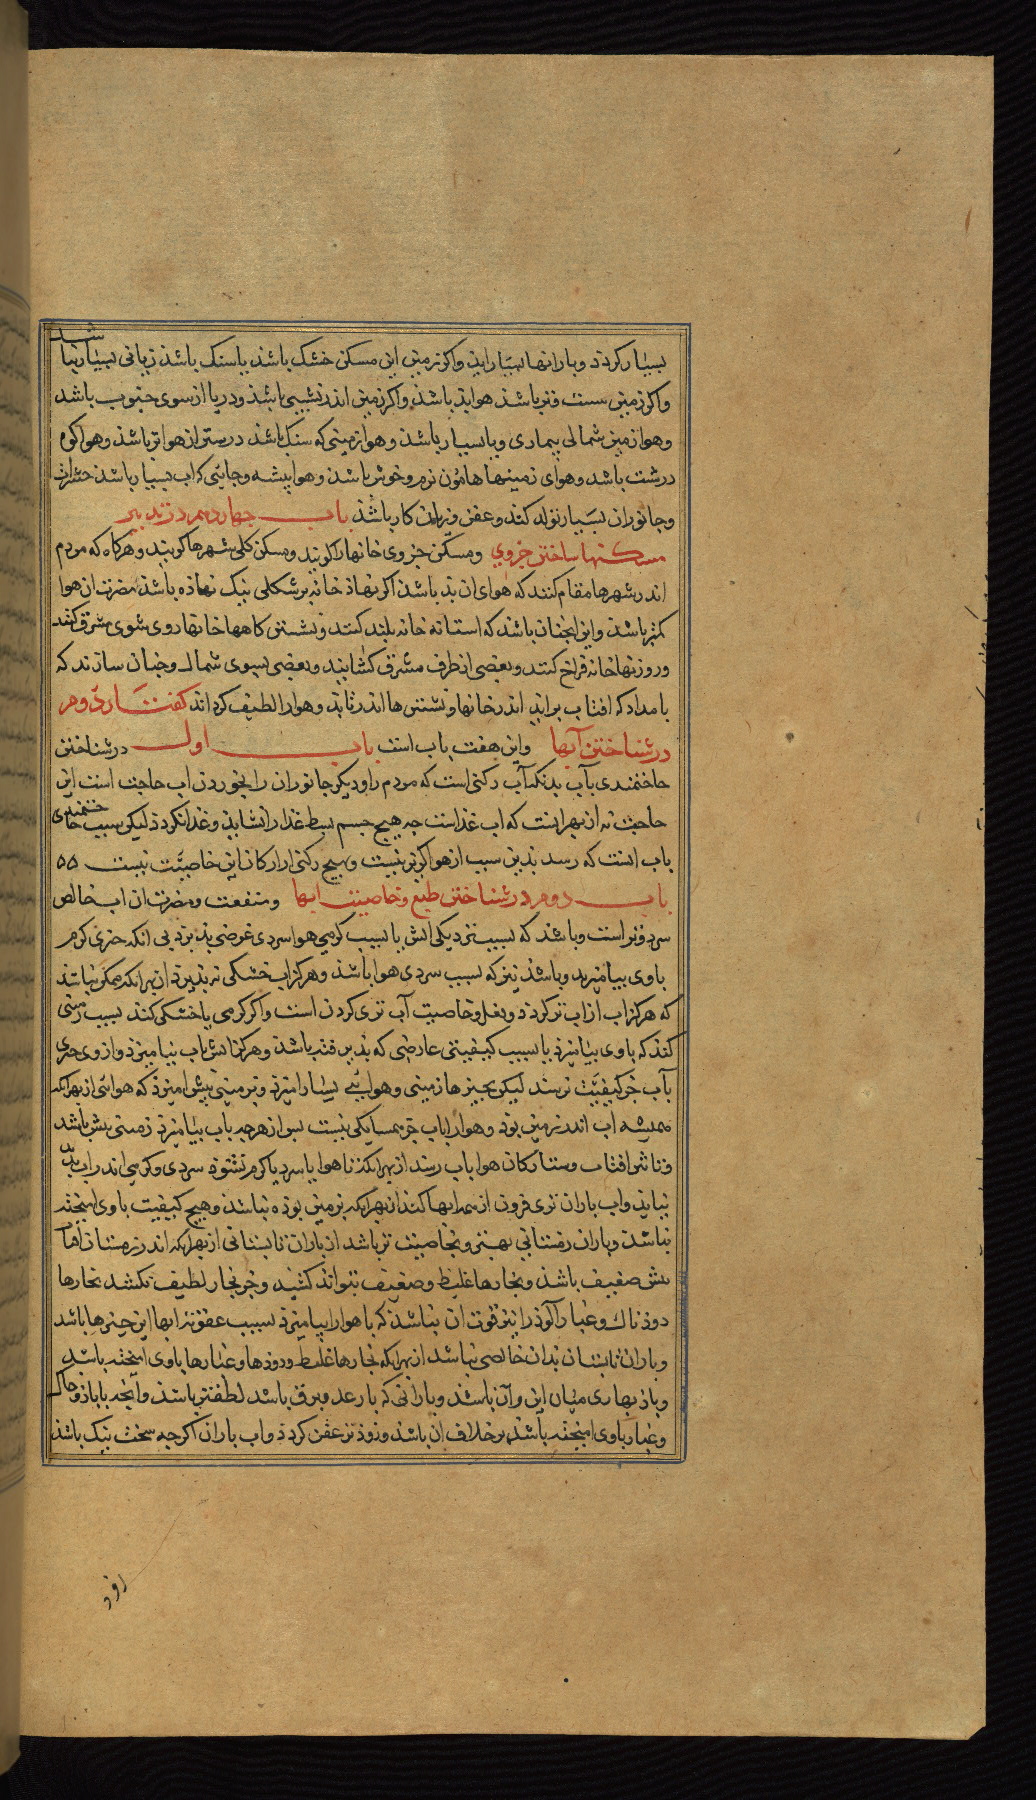 بسیار کردد و بارانها بسیار اید و اکر زمین این مسکن خشک باشد یا سنک باشد زیانی بسیار نباشد
و اکر زمین سست و تر باشد هوا بد باشد و اکر زمین اندر نشیبی باشد و دریا از سوی جنوب باشد
و هوا زمین شمالی بیماری وبا بسیار باشد و هوا زمینی که سنک باشد درستر از هوا تر باشد و هوا کوم
درشت باشد و هوای زمینها هامون نرم و خوش باشد و هوا بیشه و جائیی که اب بسیار باشد حشرات
و جانوران بسیار تولد کند و عفن و زیان کار باشد باب چهاردهم در تدبیر
مسکنها ساختن جزوی و مسکن جزوی خانها را کویند و مسکن کلی شهرها کویند و هرکاه که مردم
اندر شهرها مقام کنند که هوای ان بد باشد اکر نهاد خانه بر شکلی نیک نهاده باشد مضرت ان هوا
کمتر باشد و این انجنان باشد که استانه خانه بلند کنند و نشستن کاهها خانها روی سوی مشرق کنند
و روزنها خانه فراخ کنند و بعضی از طرف مشرق کشایند و بعضی بسوی شمال و چنان سازند که
بامداد که افتاب براید اندر خانها و نشستن ها اندر تابد و هوا را لطیف کرداند کفتار دوم
در شناختن آبها و این هفت باب است باب اول در شناختن
حاجتمندی بآب بدانکه آب رکنی است که مردم را و دیکر جانوران را بخوردن اب حاجت است این
حاجت نه از بهر انست که اب غذاست چه هیچ جسم بسیط غذا را نشاید و غذا نکردد لیکن سبب حاجتمندی
باب انست که رسد بدین سبب از هوا کزیر نیست و هیچ رکنی را از ارکان این خاصیت نیست
باب دوم در شناختن طبع و خاصیت ابها و منفعت و مضرت ان اب خالص
سرد و تر است و باشد که بسبب نزدیکی اتش یا بسبب کرمی هوا سردی عرضی بذیرد بی انکه چیزی کرم
با وی بیامیزد و باشد نیز که بسبب سردی هوا باشد و هرکز اب خشکی نه بذیرد از بهر انکه ممکن نباشد
که هرکز اب از اب تر کردد و بفعل و خاصیت آب تری کردن است و اکر کرمی یا خشکی کند بسبب زمینی
کند که با وی بیامیزد یا بسبب کیفیتی عارضی که بذیرفته باشد و هرکز اتش باب نیامیزد و از وی جزی
بآب جز کیفیت نرسد لیکن بچیزها زمینی و هوائی بسیار امیزد و بزمینی بیش امیزد که هوائی از بهر انکه
همیشه اب اندر زمین بود و هوا را باب جز همسایکی نیست بس از هرچه باب بیامیزد زمینی بیش باشد
و تاثیر افتاب و ستارکان هوا باب رسد از بهر انکه تا هوا یا سرد یا کرم نشود سردی و کرمی اندر اب بدید
نیاید و اب باران تری فزون از همه ابها کند از بهر انکه بر زمین بوده نباشد و هیچ کیفیت با وی امیخته
نباشد و باران زمستانی بهتر و بخاصیت تر باشد از باران تابستانی از بهر انکه اندر زمستان
بش ضعیف باشد و بخارها غلیظ و ضعیف نتواند کشید و جز بخار لطیف نکشد بخارها
دودناک و غبار آلود را نیز قوت ان نباشد که با هوا را بیامیزد بسبب عفونت ابها این چیزها باشد
و باران تابستان بدان خالصی نباشد از بهر انکه بخارها غلیظ و دودها و غبارها با وی امیخته باشد
و باران بهاری میان این و آن باشد و بارانی که با رعد و برق باشد لطیفتر باشد و آنچه با باد و خاک
و غبار با وی امیخته باشد بر خلاف ان باشد و زود تر عفن کردد و اب باران اکرچه سخت نیک باشد
زود